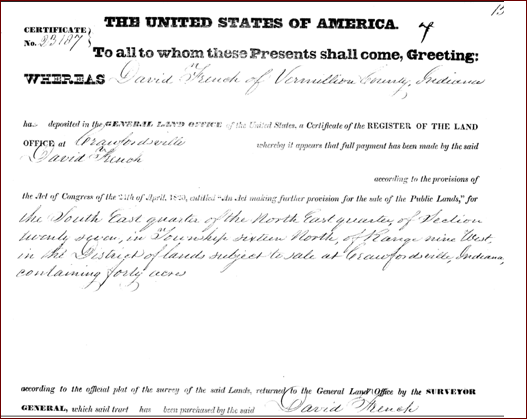 13
THE UNITED STATES OF AMERICA.
CERTIFICATE
No. 23187
To all to whom these Presents shall come, Greeting:
WHEREAS David French of Vermillion County, Indiana
has deposited in the GENERAL LAND OFFICE of the United States, a Certificate of the REGISTER OF THE LAND
OFFICE at Crawfordsville whereby it appears that full payment has been made by the said
David French
according to the provisions of
the Act of Congress of the 24th of April, 1820, entitled "An Act making further provision for the sale of the Public Lands," for
the South East quarter of the North East quarter of Section
twenty seven, in Township sixteen North, of Range nine West,
in the District of lands subject to sale at Crawfordsville, Indiana,
containing forty acres
according to the official plat of the survey of the said Lands, returned to the General Land Office by the SURVEYOR
GENERAL, which said tract has been purchased by the said David French